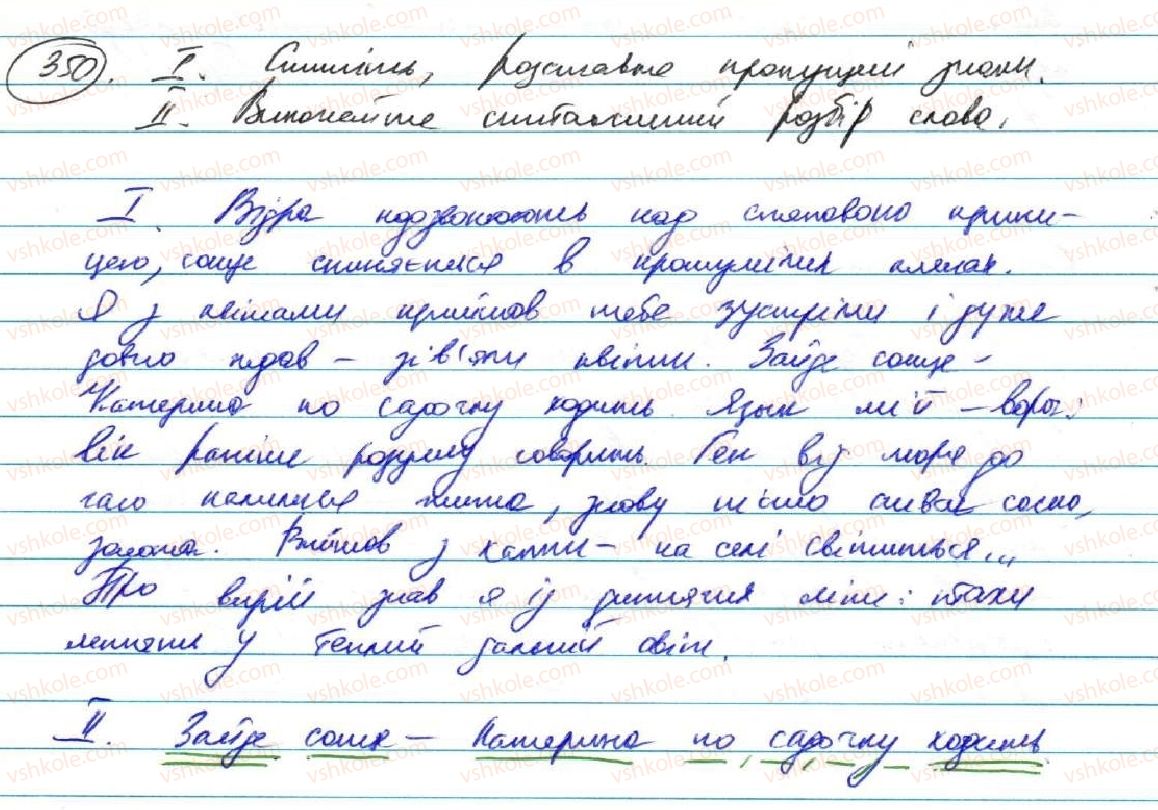 350. I. Спишіть, розставте пропущені знаки.
II. Виконайте синтаксичний розбір слова.
I. Відра подзвонюють над степовою крини-
цею, сонце спиняється в промитих
Я з квітами прийшов тебе зустріти і дуже
довго ждав – зів'яли квіти. Зайде сонце –
Катерина по садочку ходить. Язык мій – ворог:
вік раніше розуму говорить. Ген від моря до
гаю жита, знову літо сонно,
золота. Вийшов з хати – на селі світиться...
Про вирій знав я із дитячих літ: птахи
летять у теплий дальній світ.
II. Зайде сонце – Катерина по садочку ходить